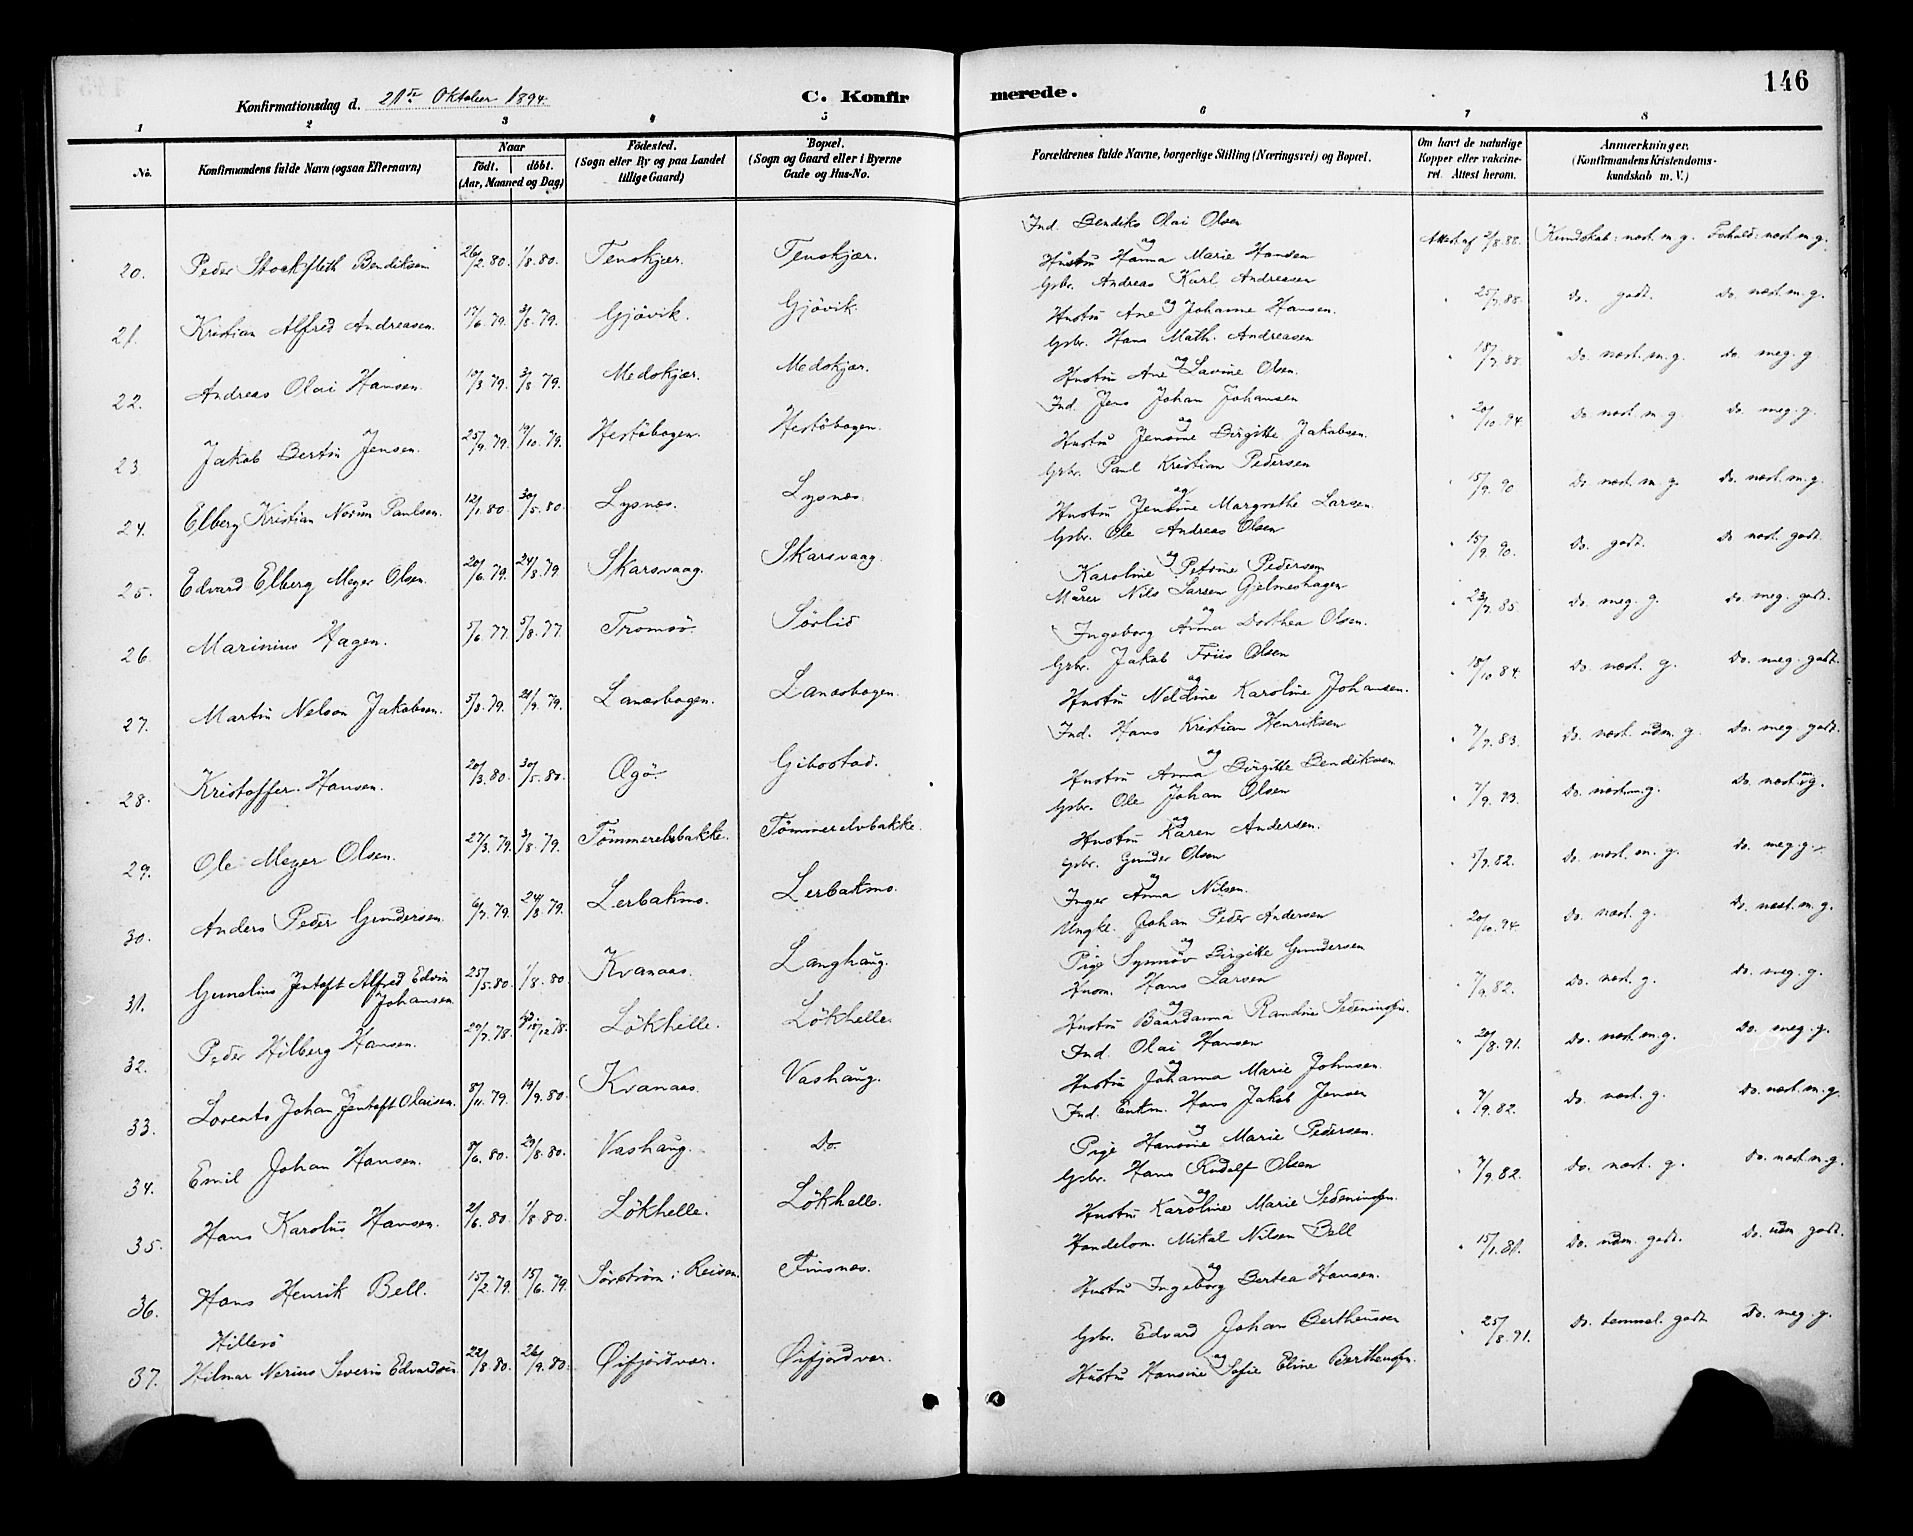 146
Konfirmationsdag d. 21de Oktober 1894.
C. Konfirmerede.
1 2 3 4 5 6 7 8
No. Konfirmandens fulde Navn (ogsaa Efternavn) Naar födt. döbt. (Aar, Maaned og Dag) Födested. (Sogn eller By og paa Landet tillige Gaard) Bopæl. (Sogn og Gaard eller i Byerne Gade og Hus-No. Forældrenes fulde Navne, borgerlige Stilling (Næringsvei) og Bopæl. Om havt de naturlige Kopper eller vakcineret. Attest herom. Anmærkninger. (Konfirmandens Kristendomskundskab m. V.)
20. Peder Stockfleth Bendiksen 26/2.80. 1/8.80. Tenskjær. Tenskjær. Ind. Bendiks Olai Olsen og Hustru Hanna Marie Hansen Attest af /8.88. Kundskab: næst. m. g. Forhold: næst m. g.
21. Kristian Alfred Andreasen. 17/6 79. 3/8. 79. Gjövik. Gjövik. Gsbr. Andreas Karl Andreasen og Hustru Ane Johanne Hansen. " 25/7.88. Do. godt. Do. næst. m. g.
22. Andreas Olai Hansen. 19/3 79. 3/8 79. Medskjær. Medskjær. Gsbr. Hans Math. Andreasen og Hustru Ane Lavine Olsen. " 18/7 88. Do. næst. m. g. Do. meg. g.
23. Jakob Bertin Jensen. 25/9 79. 19/10. 79. Hestöbogen. Hestöbogen. Ind. Jens Johan Johansen og Hustru Jensine Birgitte Jakobsen. " 20/10.94. Do næst. m. g. Do. meg. g.
24. Elberg Kristian Norum Paulsen. 12/1 80. 30/5.80. Lysnæs. Lysnæs. Gsbr. Paul Kristian Pedersen og Hustru Jensine Margrethe Larsen. " 15/9. 90 Do næst m g. Do. næst. m. g.
25. Edvard Elberg Meyer Olsen. 20/6.79. 24/8.79 Skarsvaag. Skarsvaag. Gsbr. Ole Andreas Olsen og Karoline Petrine Pedersen " 15/9. 90. Do. godt. Do næst. godt.
26. Marinius Hagen. 5/6. 77. 5/8. 77. Tromsö. Sörlid Murer Nils Larsen Gjelmeshagen og Ingeborg Anna Dorthea Olsen. " 23/7.85. Do meg. g. Do. meg. godt.
27. Martin Nelson Jakobsen. 5/8.79. 21/9. 79. Lanæsbogen. Lanæsbogen. Gsbr. Jakob Friis Olsen og Hustru Neldine Karoline Johansen. " 18/10 84. Do. næst. g. Do. meg. godt.
28. Kristoffer Hansen. 20/3.80. 30/5.80. Ægö Gibostad. Ind. Hans Kristian Henriksen og Hustru Anna Birgitte Bendiksen " 7/9.83. Do. næst. udm. g. Do. meg godt.
29. Ole Meyer Olsen. 27/3. 79. 3/8. 79. Tömmerelvbakke. Tömmerelvbakke. Gsbr. Ole Johan Olsen og Hustru Karen Andersen. " 7/9. 93. Do. næst. m. g. Do. næst. m g.
30. Anders Peder Gundersen. 6/7. 79. 24/8.79. Lerbakmo. Lerbakmo. Gsbr. Gunder Olsen og Inger Anna Nilsen. " 5/9.82. Do. næst. m. g. Do. meg. g.
31. Gunelius Jentoft Alfred Edvin Johansen 25/5.80. 1/8. 80 Kvanaas. Langhaug. Ungkl. Johan Peder Andersen og Pige Synnöv Birgitte Gundersen " 20/10.94. Do. næst. g. Do. næst. m. g.
32. Peder Hilberg Hansen. 29/7.78. /12 78. Lökhelle. Lökhelle. Husm. Hans Larsen og Hustru Baardanna Randine " 7/9.82. Do. næst. g. Do. meg. g.
33. Lorents Johan Jentoft Olaisen. 8/11. 79. 19/9.80. Kvanaas. Vashaug. Ind. Olai Hansen og Hustru Johanna Marie Johnsen. " 20/8. 91. Do. næst m. g. Do. meg. g.
34. Emil Johan Hansen. 8/6. 80. 29/8.80. Vashaug. Do. Ind. Enkm. Hans Jakob Jensen og Pige Hansine Marie Pedersen. " 7/9.82. Do. næst. g. Do. næst. m. g.
35. Hans Karolus Hansen. 2/6. 80. 1/8 80. Lökhelle. Lökhelle. Gsbr. Hans Rudolf Olsen og Hustru Karoline Marie " 7/9.82. Do. næst. g. Do. næst m. g.
36. Hans Henrik Bell. 15/2. 79. 15/6. 79. Sörström i Reisen. Finsnæs. Handelsm. Mikal Nilsen Bell og Hustru Ingeborg Bertea Hansen. " 15/1.81. Do. udm. godt. Do. udm godt.
37. Hillesö Hilmar Nerius Severin Edvardsen. 22/8.80. 26/9.80. Øifjordvær. Øifjordvær. Gsbr. Edvard Johan Bertheussen og Hustru Hansine Sofie Eline " 25/8.91. Do. temmel. godt Do. meg. g.